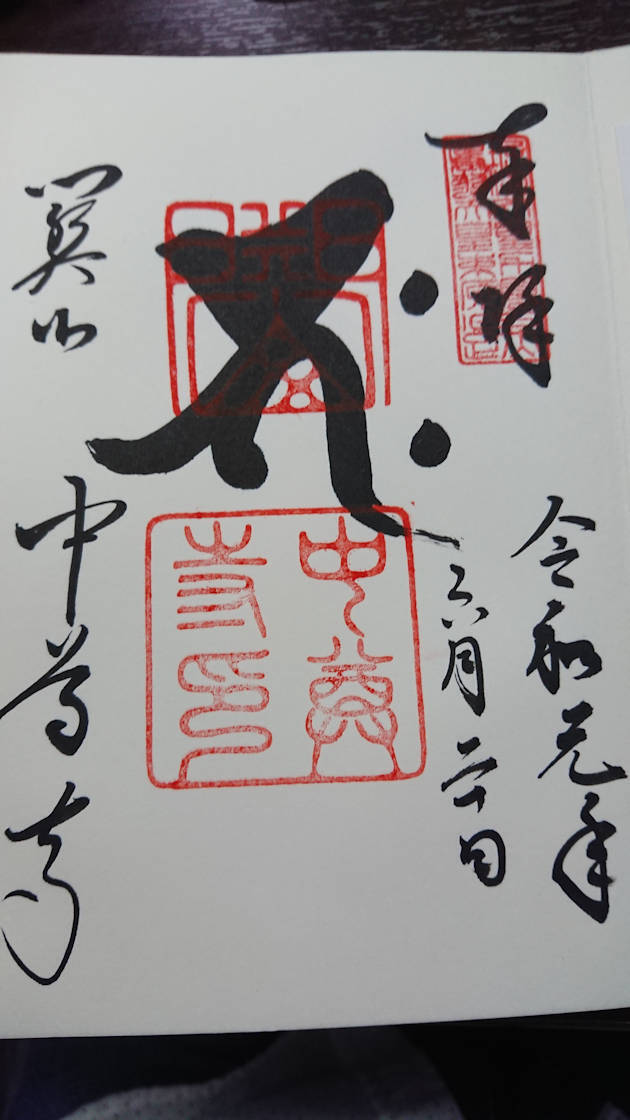 奉拝
令和元年
六月二十日
中尊寺印
関山
中尊寺